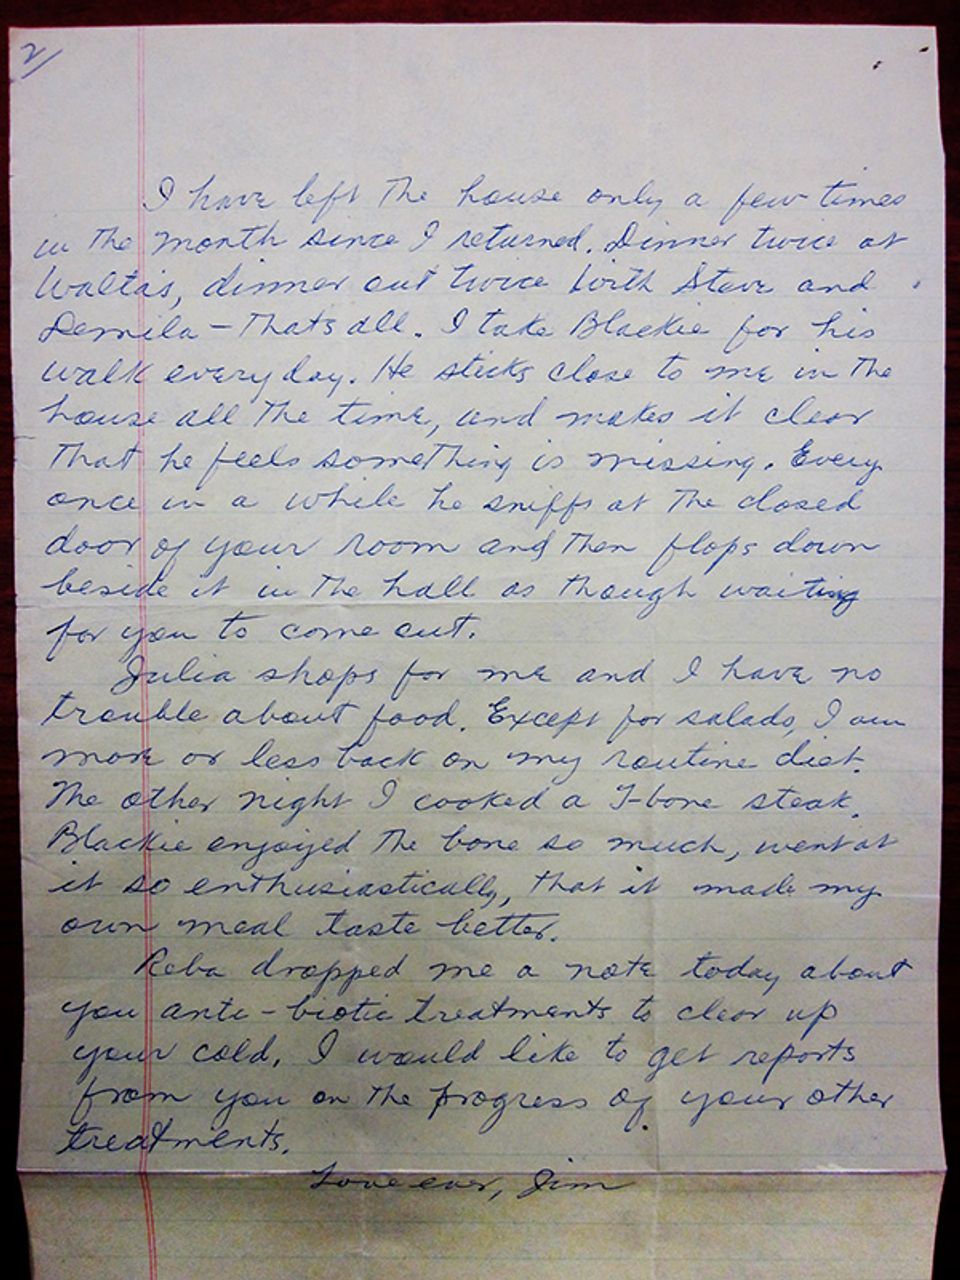 2/
I have left the house only a few times
in the month since I returned. Dinner twice at
Walta's, dinner out twice with Steve and
Demila - thats all. I take Blackie for his
walk every day. He sticks close to me in the
house all the time, and makes it clear
that he feels something is missing. Every
once in a while he sniffs at the closed
door of your room and then flops down
beside it in the hall as though waiting
for you to come out.
Julia shops for me and I have no
trouble about food. Except for salads, I am
more or less back on my routine diet.
The other night I cooked a T-bone steak.
Blackie enjoyed the bone so much, went at
it so enthusiastically, that it made my
own meal taste better.
Reba dropped me a note today about
you anti-biotic treatments to clear up
your cold. I would like to get reports
from you on the progress of your other
treatments.
Love ever, Jim